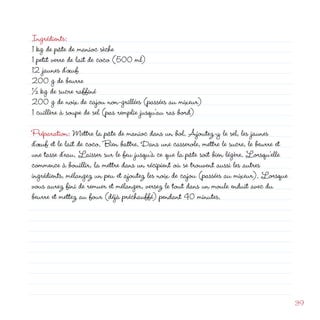 Ingrédients:
1 kg de pâte de manioc sèche
1 petit verre de lait de coco (500 ml)
12 jaunes d'œuf
200 g de beurre
½ kg de sucre raffiné
200 g de noix de cajou non-grillées (passées au mixeur)
1 cuillère à soupe de sel (pas remplie jusqu'au ras bord)
Préparation: Mettre la pâte de manioc dans un bol. Ajoutez-y le sel, les jaunes
d'œuf et le lait de coco. Bien battre. Dans une casserole, mettre le sucre, le beurre et
une tasse d'eau. Laisser sur le feu jusqu'à ce que la pâte soit bien légère. Lorsqu'elle
commence à bouillir, la mettre dans un récipient où se trouvent aussi les autres
ingrédients, mélangez un peu et ajoutez les noix de cajou (passées au mixeur). Lorsque
vous aurez fini de remuer et mélanger, versez le tout dans un moule enduit avec du
beurre et mettez au four (déjà préchauffé) pendant 40 minutes.
39